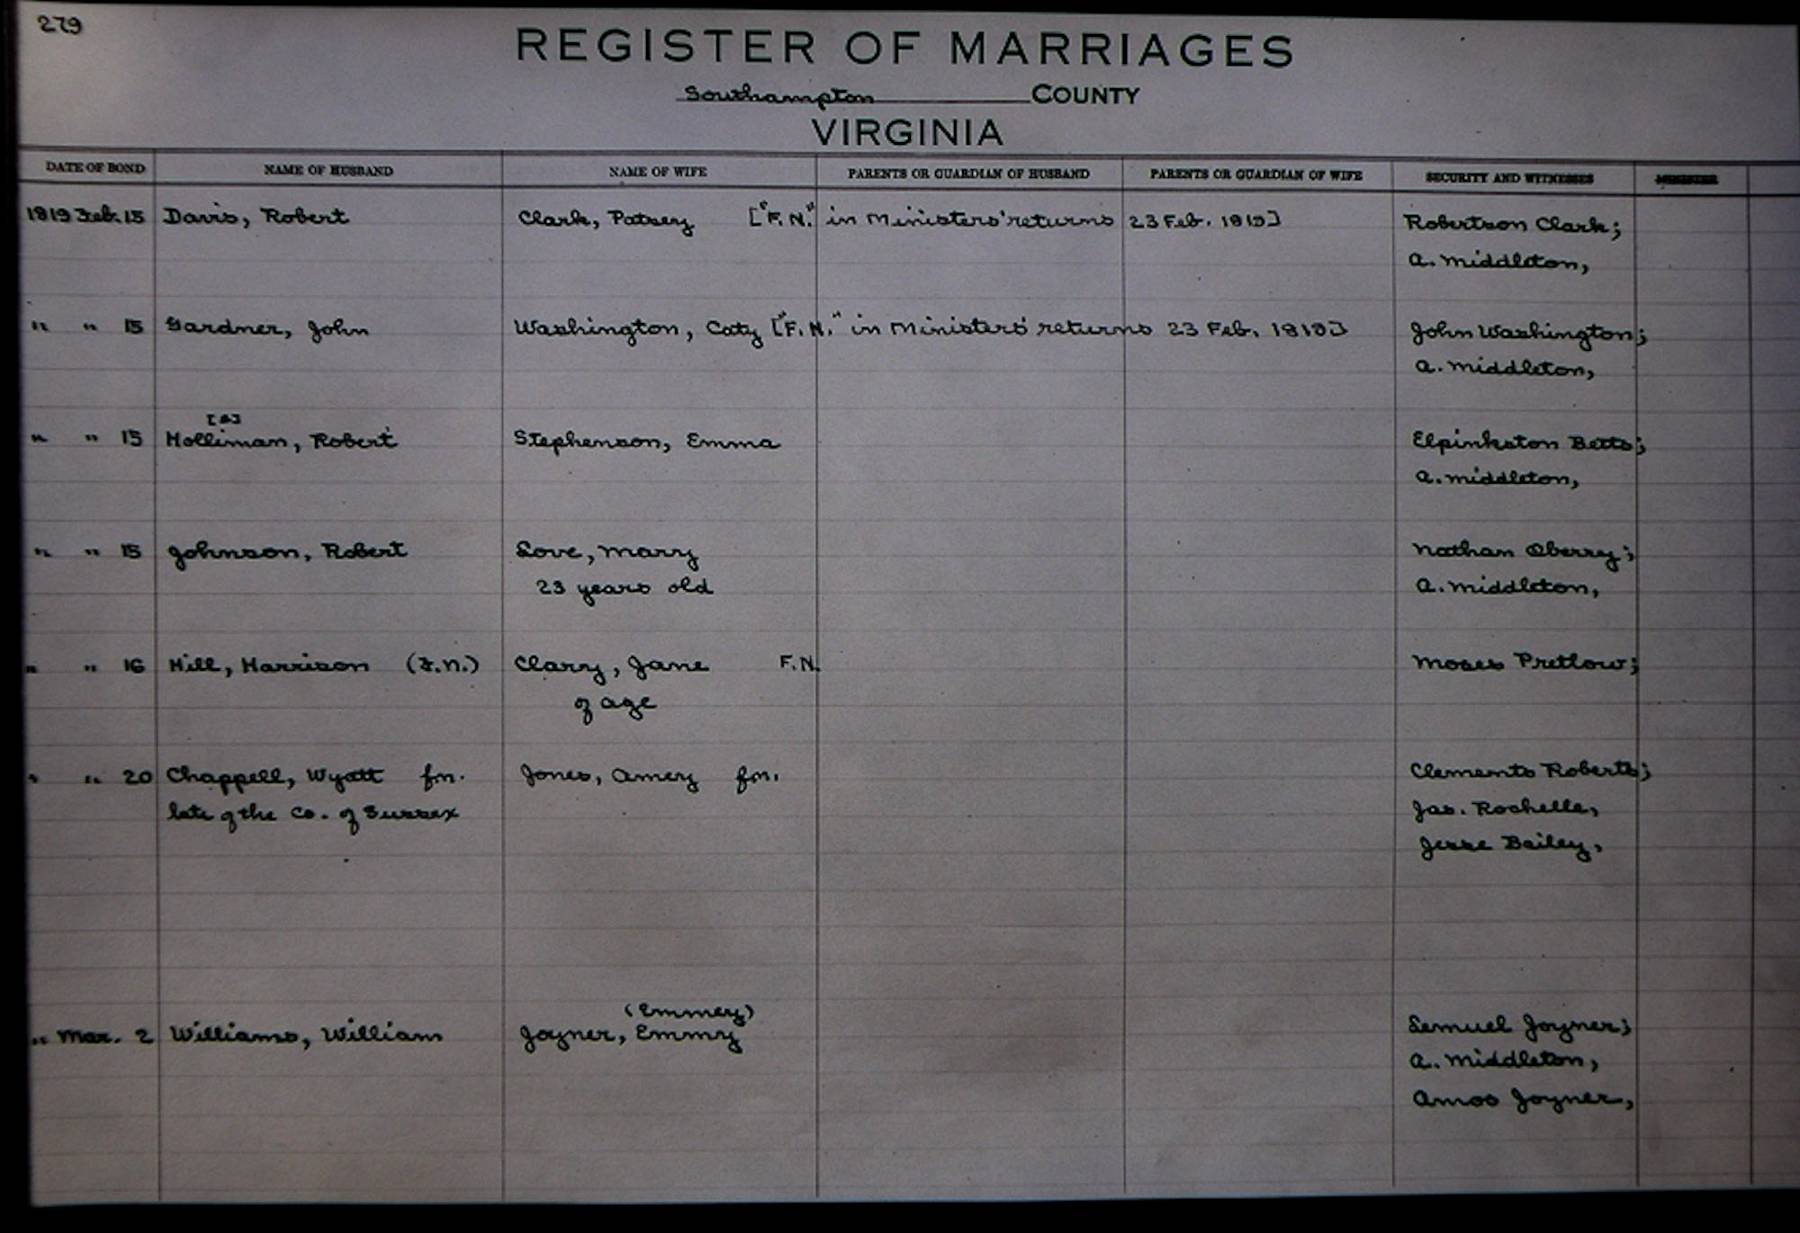 279
REGISTER OF MARRIAGES
Southampton COUNTY
VIRGINIA
DATE OF BOND NAME OF HUSBAND NAME OF WIFE PARENTS OR GUARDIAN OF HUSBAND PARENTS OR GUARDIAN OF WIFE SECURITY AND WITNESSES MINISTER
1819 Feb. 15 Davis, Robert Clark, Patsey ["F.N." in Ministers' returns 23 Feb. 1819] Robertson Clark;
A. Middleton,
" " 15 Gardner, John Washington, Caty ["F.N." in Ministers' returns 23 Feb. 1819] John Washington;
A. Middleton,
[a]
" " 15 Holliman, Robert Stephenson, Emma Elpinkston Betts;
A. Middleton,
" " 15 Johnson, Robert Love, Mary Nathan Oberry;
23 years old A. Middleton,
" " 16 Hill, Harrison (F.N.) Clary, Jane F.N. Moses Pretlow;
of age
" " 20 Chappell, Wyatt fn. Jones, Amey fn. Clements Roberts;
late of the Co. of Sussex Jas. Rochelle,
Jesse Bailey,
(Emmey)
" Mar. 2 Williams, William Joyner, Emmy Samuel Joyner;
A. Middleton,
Amos Joyner,